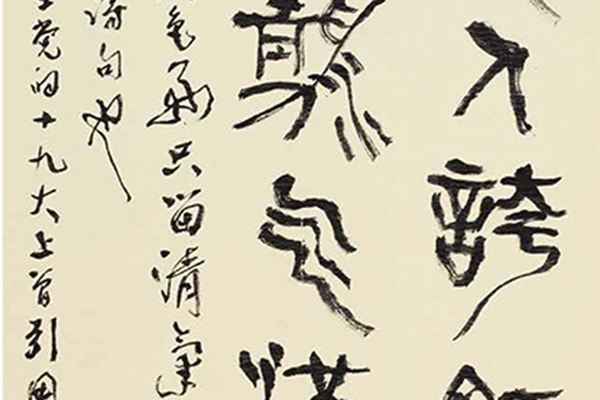 人誇
清氣
好只留清氣
詩句也
党的十九大上曾引用